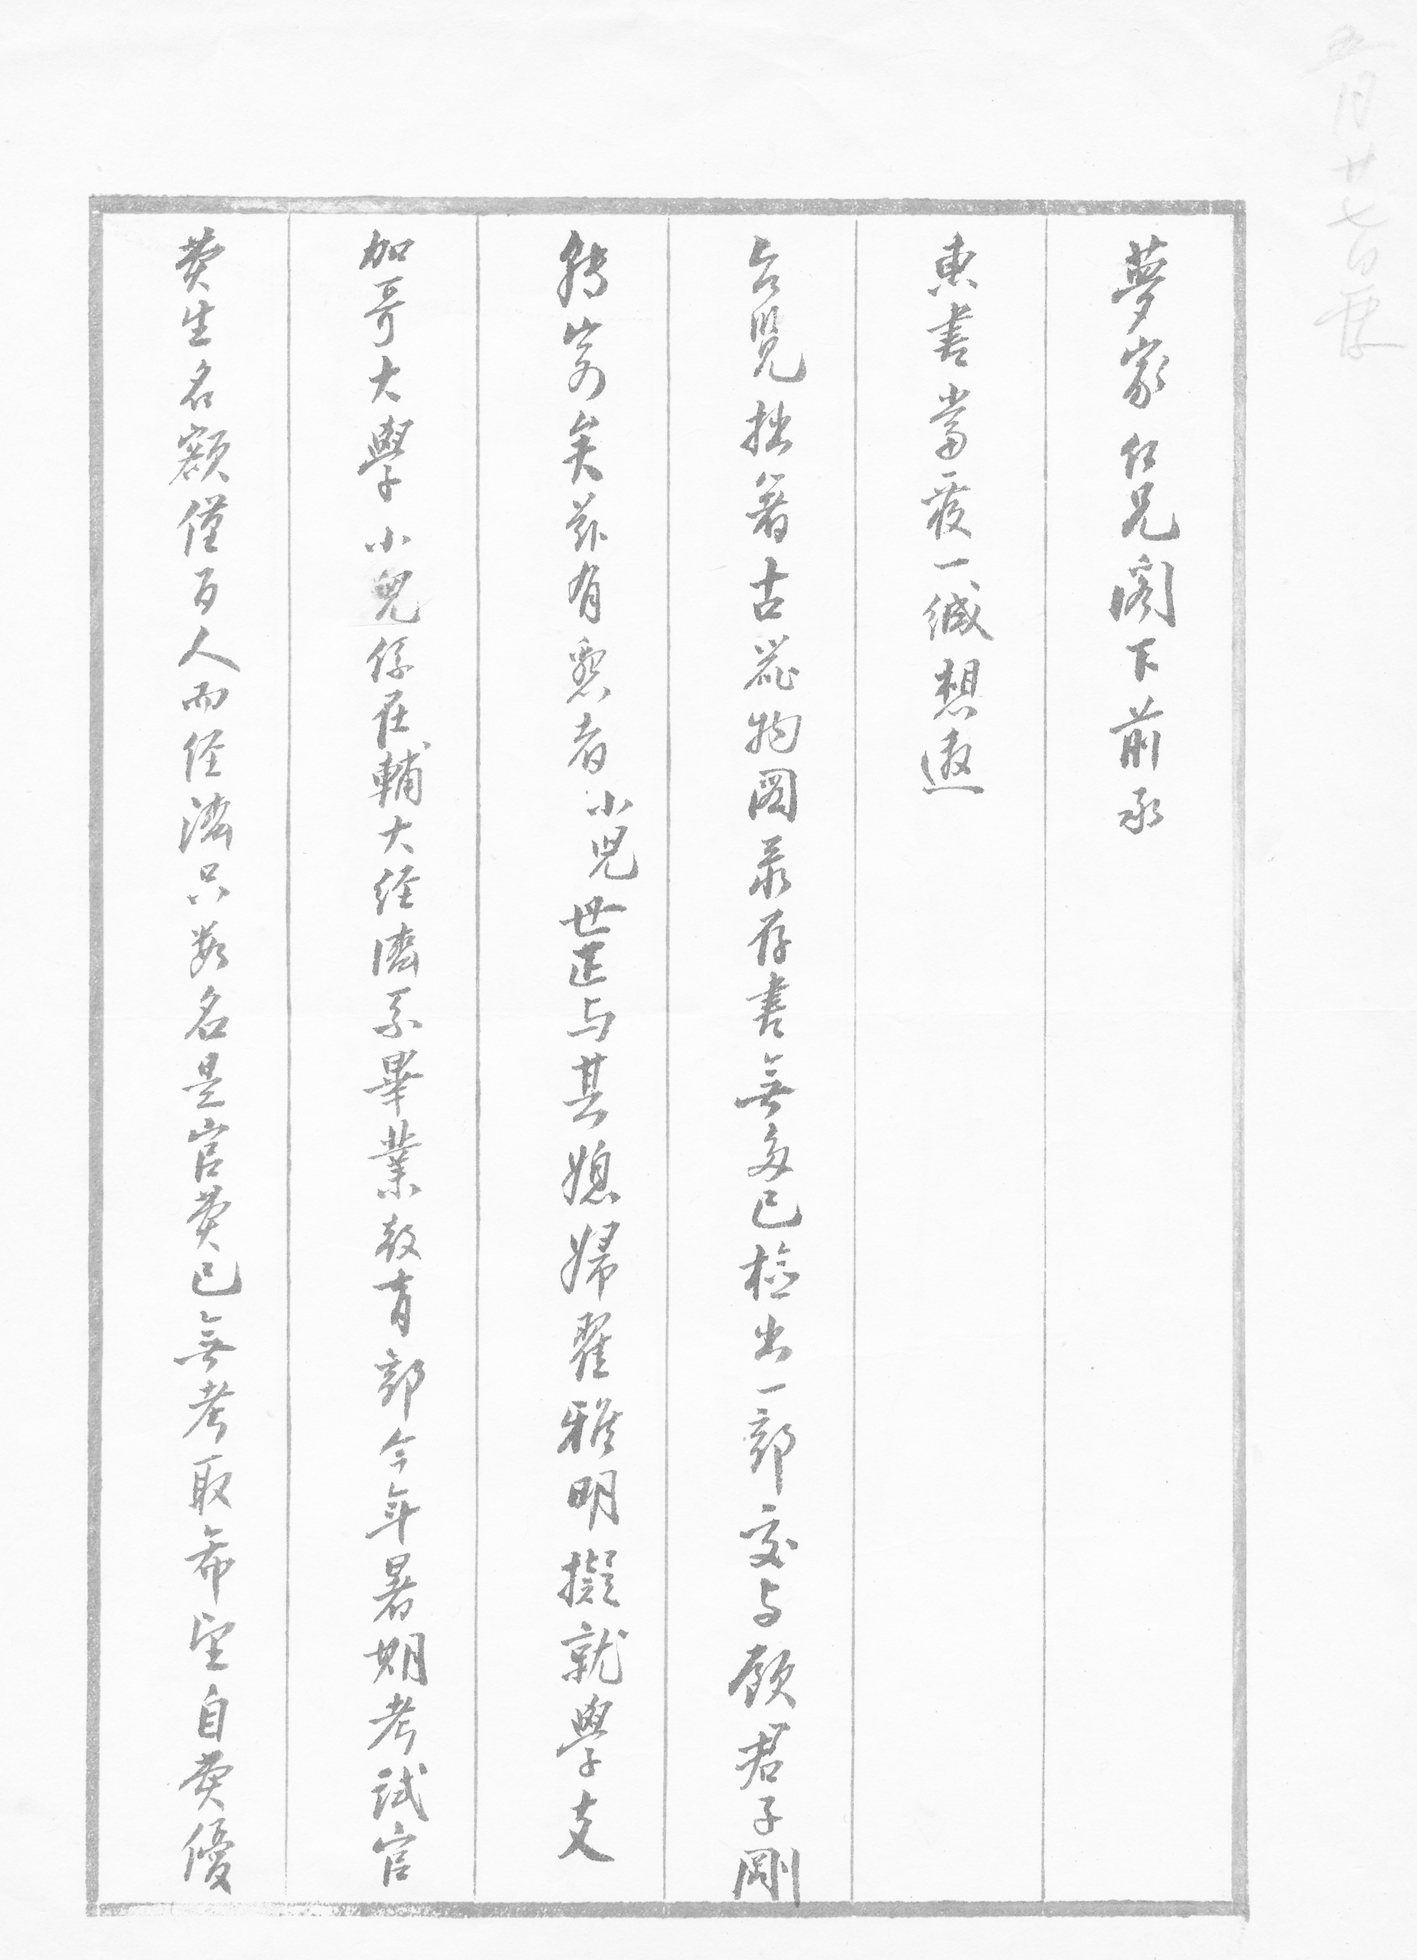 五月廿七日覆
夢家仁兄閣下前承
惠書當覆一緘想邀
台覽拙著古器物圖录存書無多已檢出一部交与顧君子剛
轉寄矣茲有懇者小兒世正与其媳婦翟雅明擬就學支
加哥大學小兒係在輔大經濟系畢業教育部今年暑期考試官
費生名額僅百人而經濟只數名是官費已無考取希望自費優